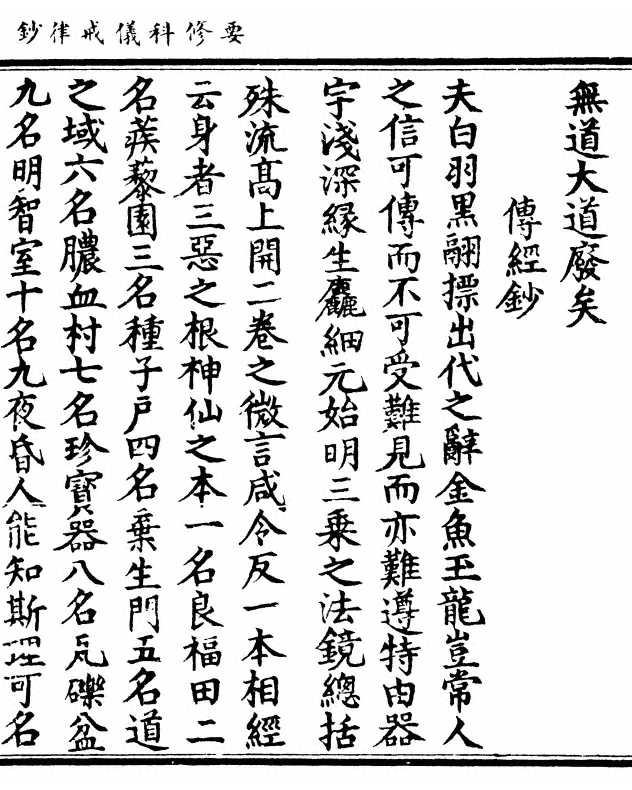 要修科儀戒律鈔
無道大道廢矣
傳經鈔
夫白羽黑翮摽出代之辭金魚玉龍豈常人
之信可傳而不可受難見而亦難遵特由器
宇淺深緣生麤細元始明三乘之法鏡總括
殊流高上開二卷之微言咸令反一本相經
云身者三惡之根神仙之本一名良福田二
名蒺藜園三名種子戶四名棄生門五名道
之域六名膿血村七名珍寶器八名瓦礫盆
九名明智室十名九夜昏人能知斯理可名